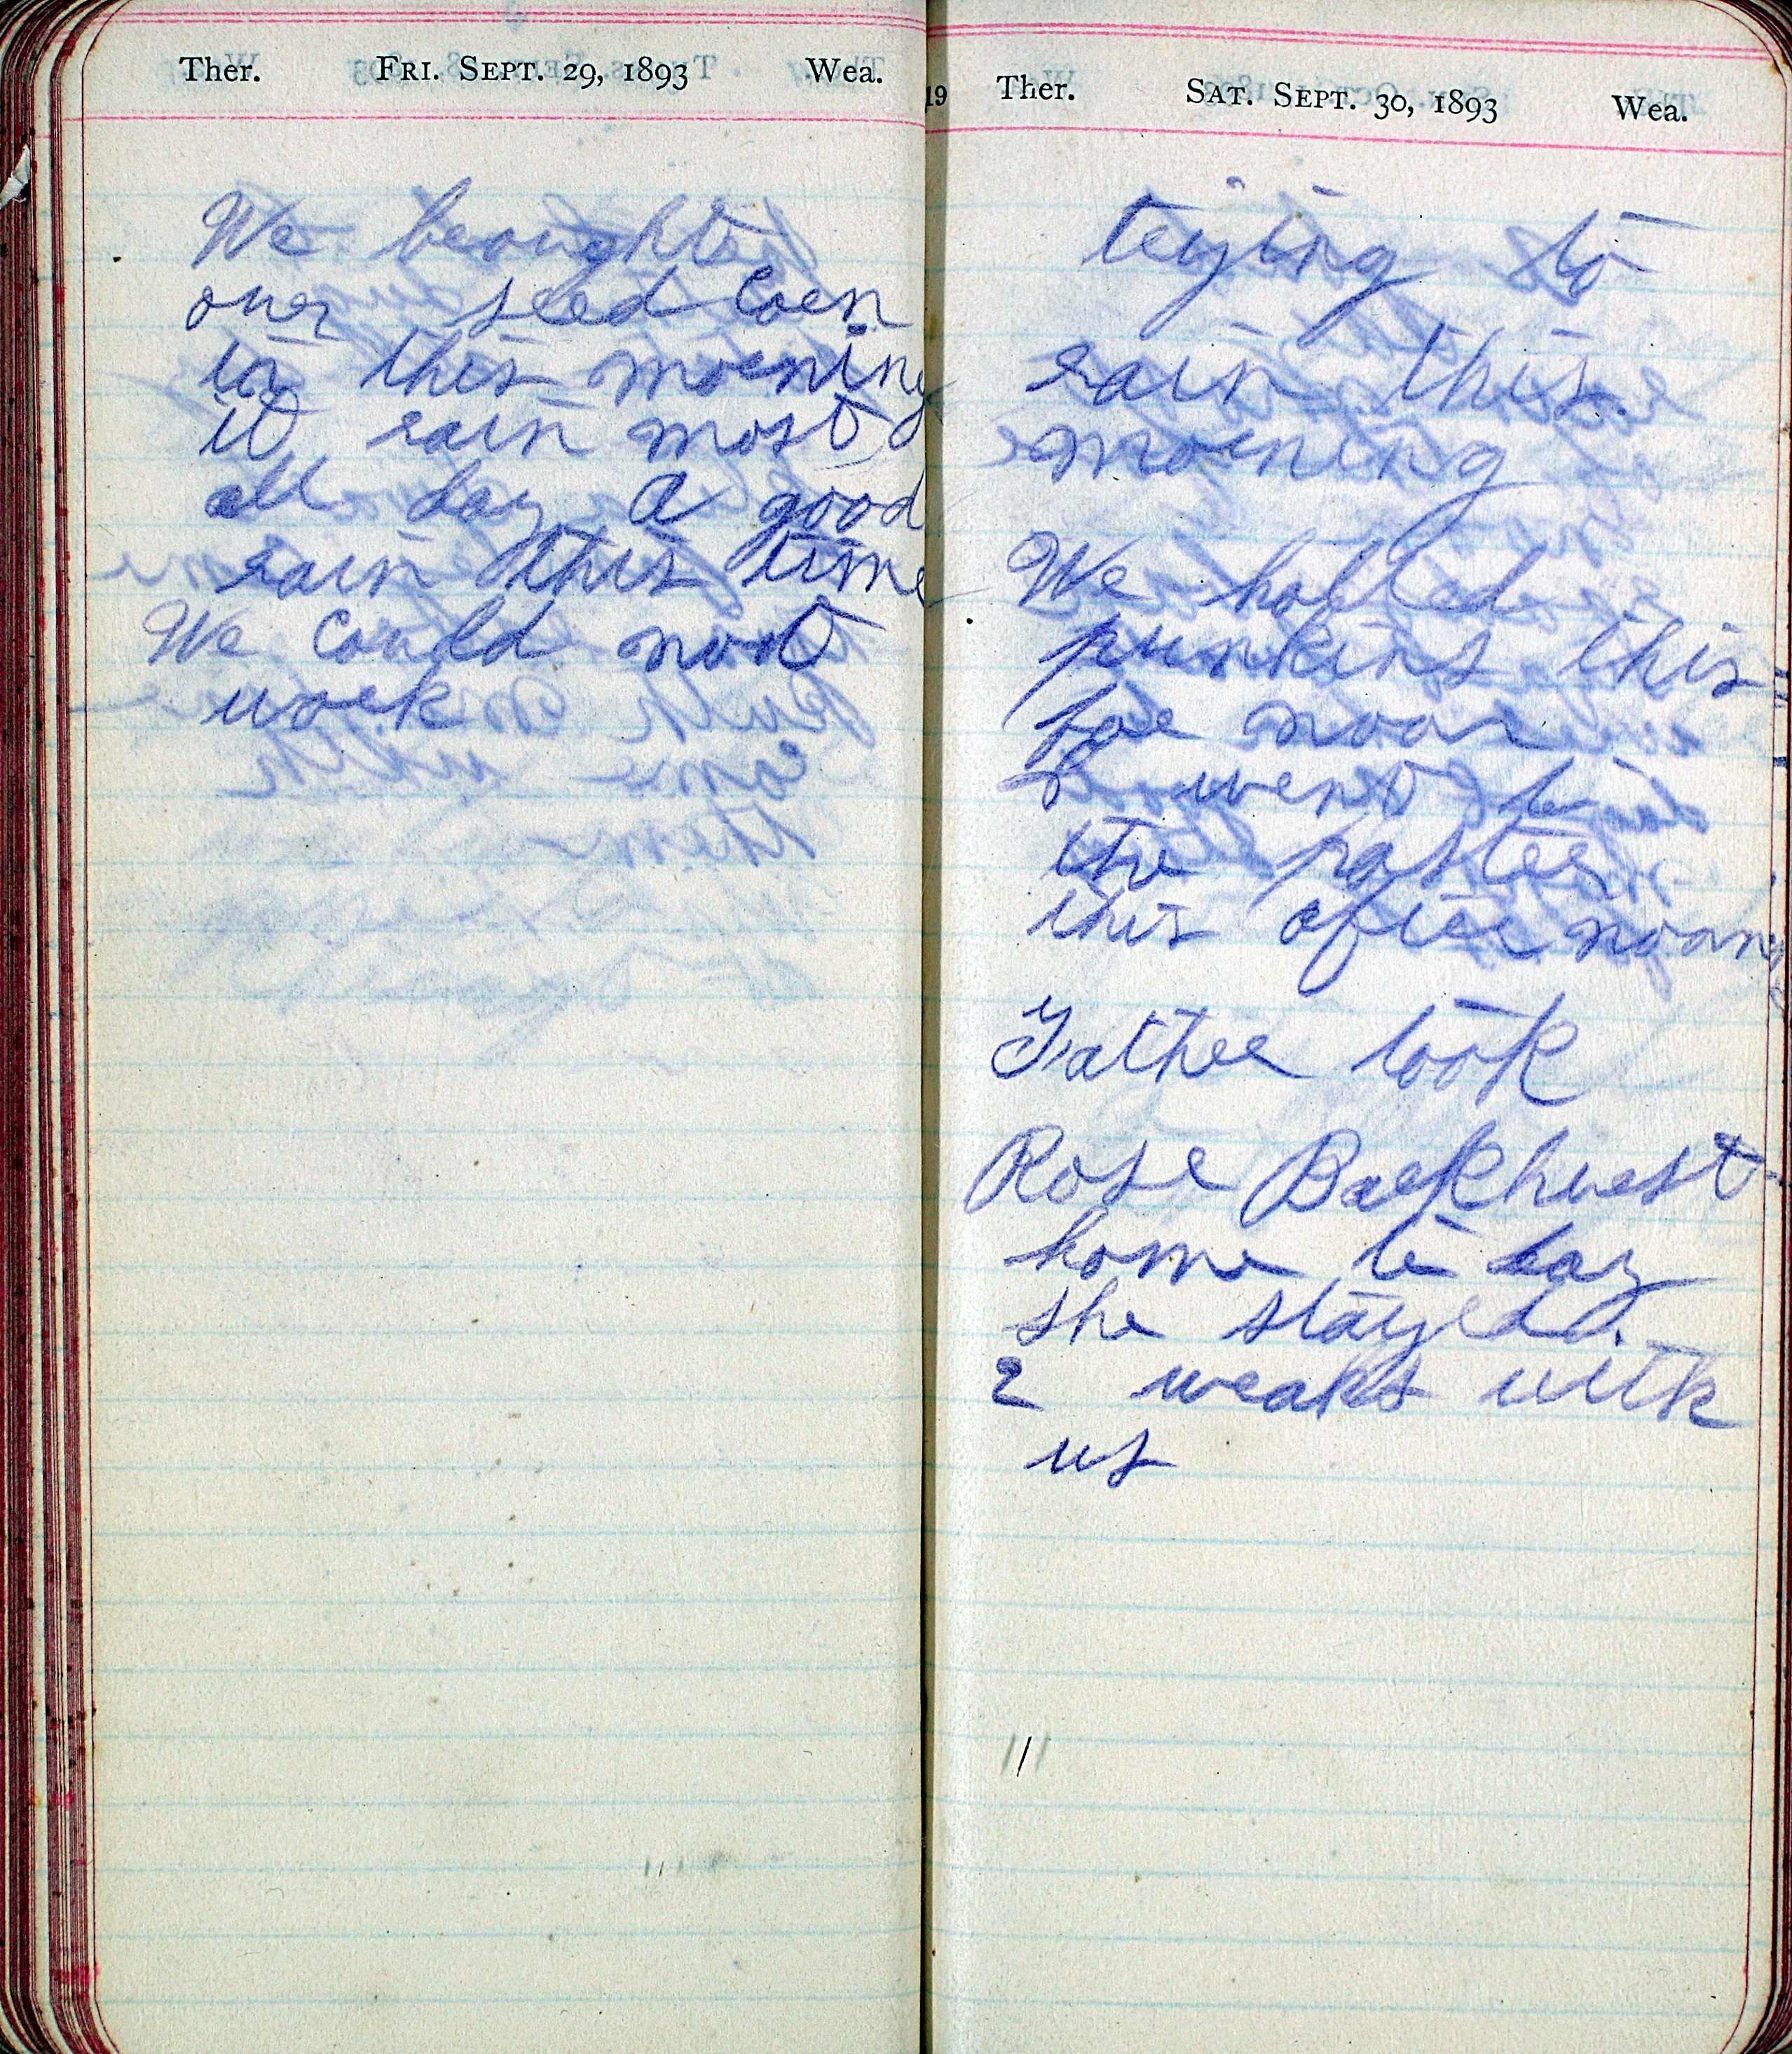 Ther. FRI. SEPT. 29, 1893 Wea.
We brought
our seed corn
in this morning
it rain most
all day a good
rain this time
We could not
work
Ther. SAT. SEPT. 30, 1893 Wea.
trying to
rain this
morning
We holled
punkins this
fore noon
I went to
the paster
this after noon
Father took
Rose Barkhurst
home to day
she stayed
2 weaks with
us